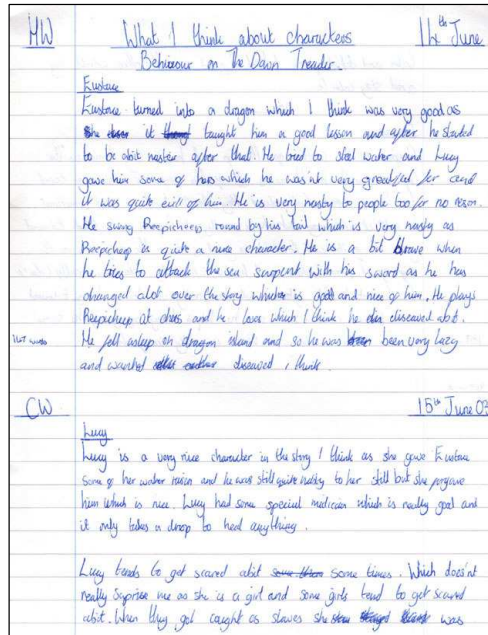 HW What I think about characters 14th June
Behiavour on The Dawn Treader.
Eustace
Eustace turned into a dragon which I think was very good as
it taught him a good lesson and after he started
to be abit naster after that. He tried to steel water and Lucy
gave him some of hers which he was'nt very greatfed for and
it was quite evill of him. He is very nasty to people too for no reson.
He swing Reepicheep round by his tail which is very nasty as
Reepicheep is quite a nice character. He is a bit brave when
he tries to attack the sea serpent with his sword as he has
changed alot over the story which is good and nice of him. He plays
Reepicheep at chess and he lose which I think he diseaved abit.
He fell asleep on dragon island and so he was been very lazy
and wanted diseaved i think.
CW 15th June 03
Lucy
Lucy is a very nice character in the story I think as she gave Eustace
some of her water raison and he was still quite nasty to her still but she forgave
him which is nice. Lucy had some special medicien which is really good and
it only takes a drop to heal anything.
Lucy tends to get scared abit some times. Which does'nt
really suprise me as she is a girl and some girls tend to get scared
abit. When they got caught as slaves she was